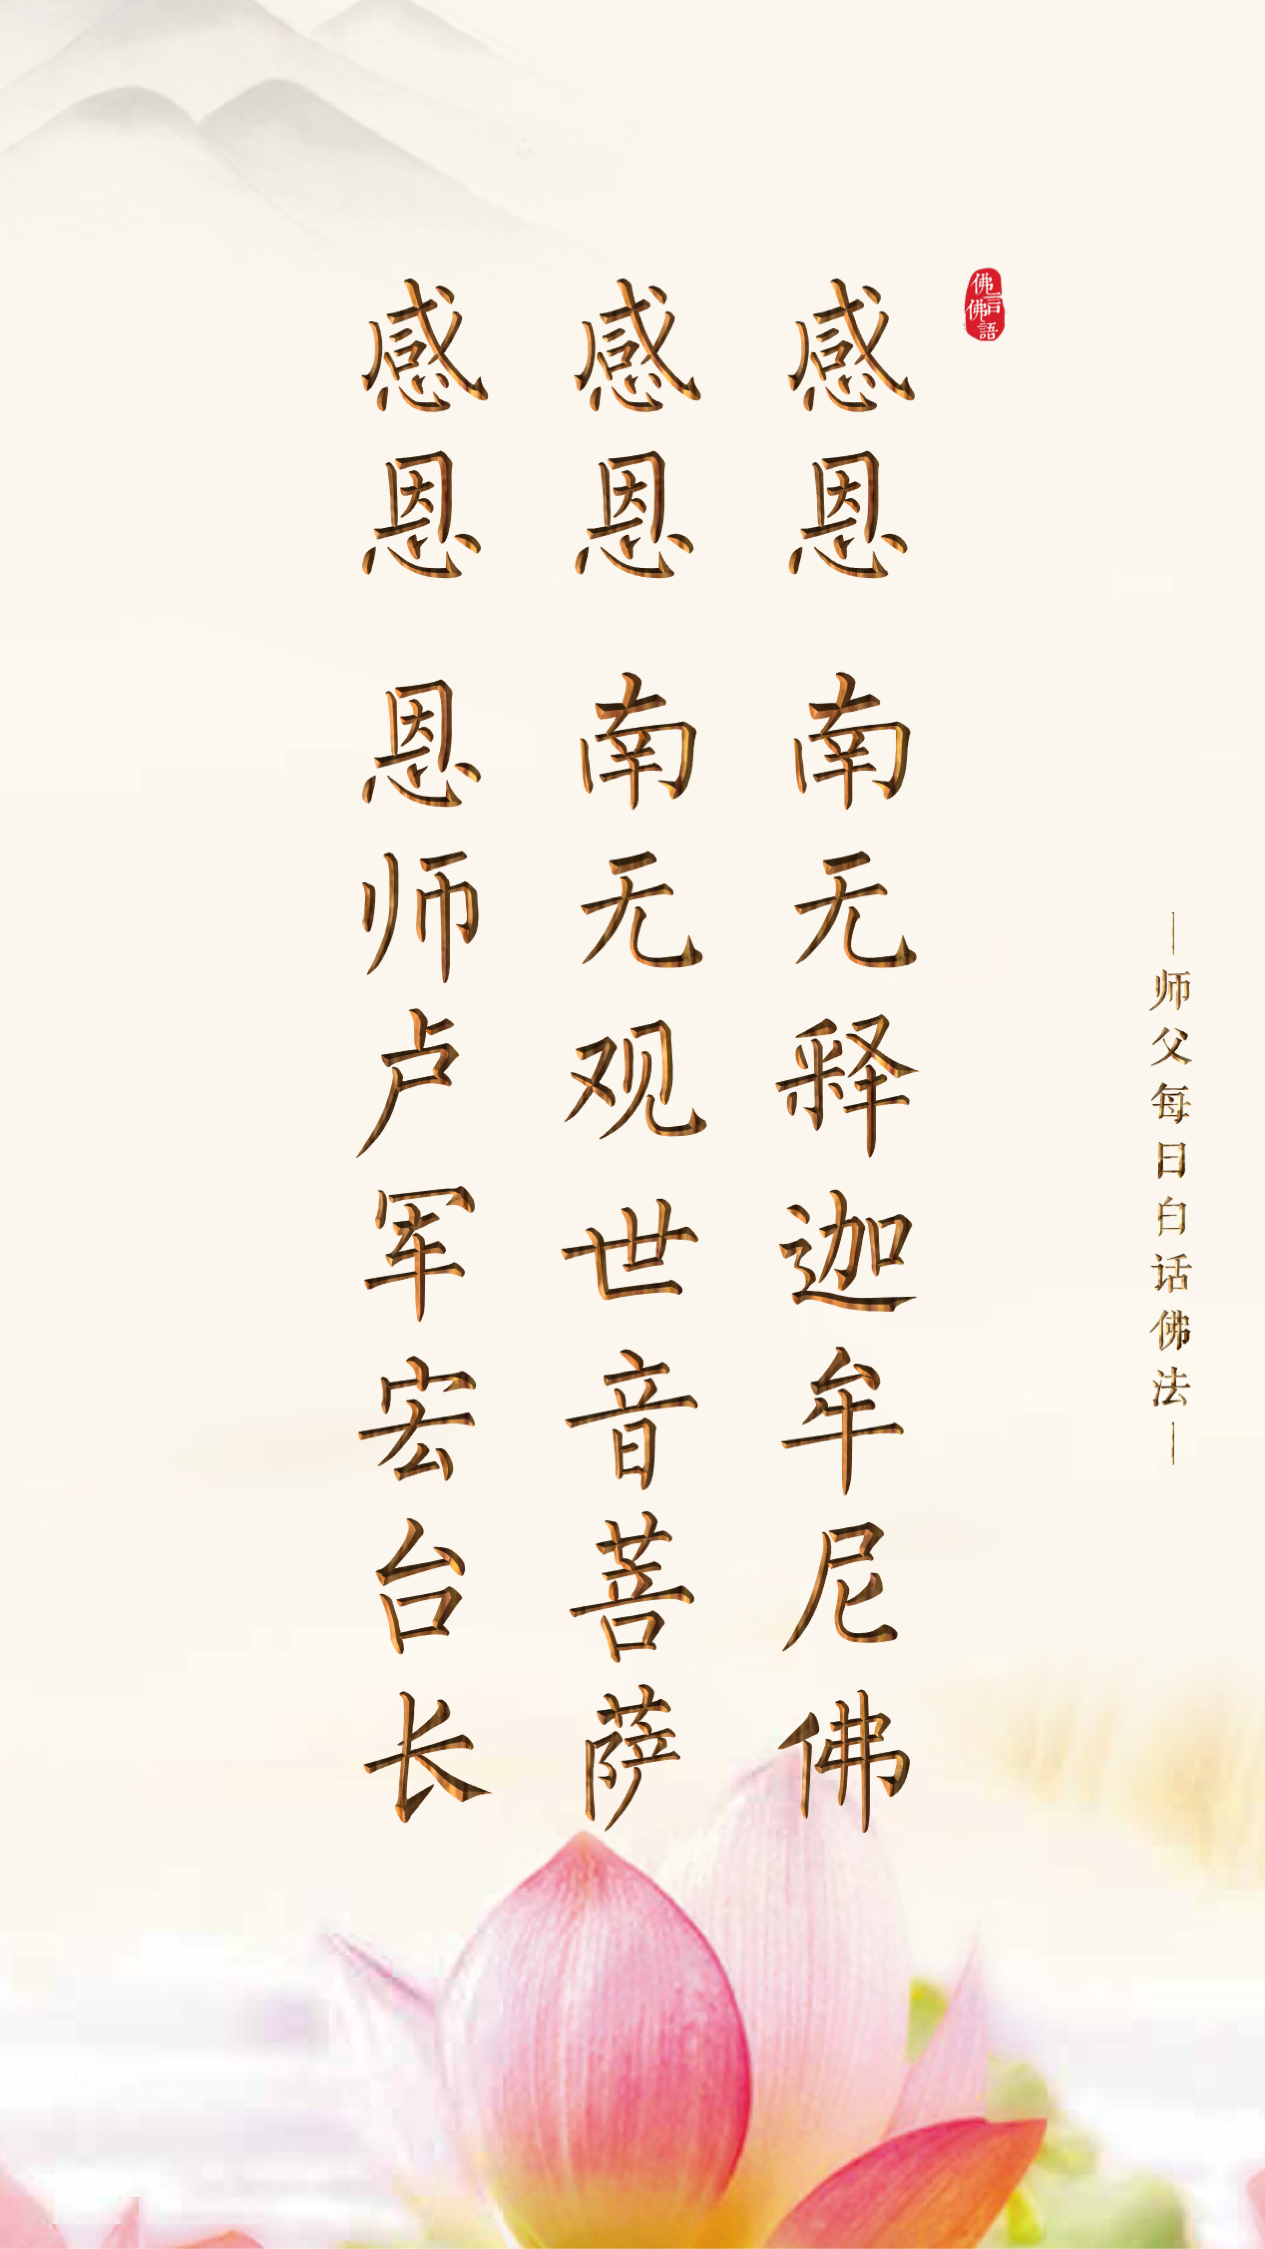 佛言佛語
感恩 南无释迦牟尼佛
感恩 南无观世音菩萨
感恩 恩师卢军宏台长
—师父每日白话佛法—